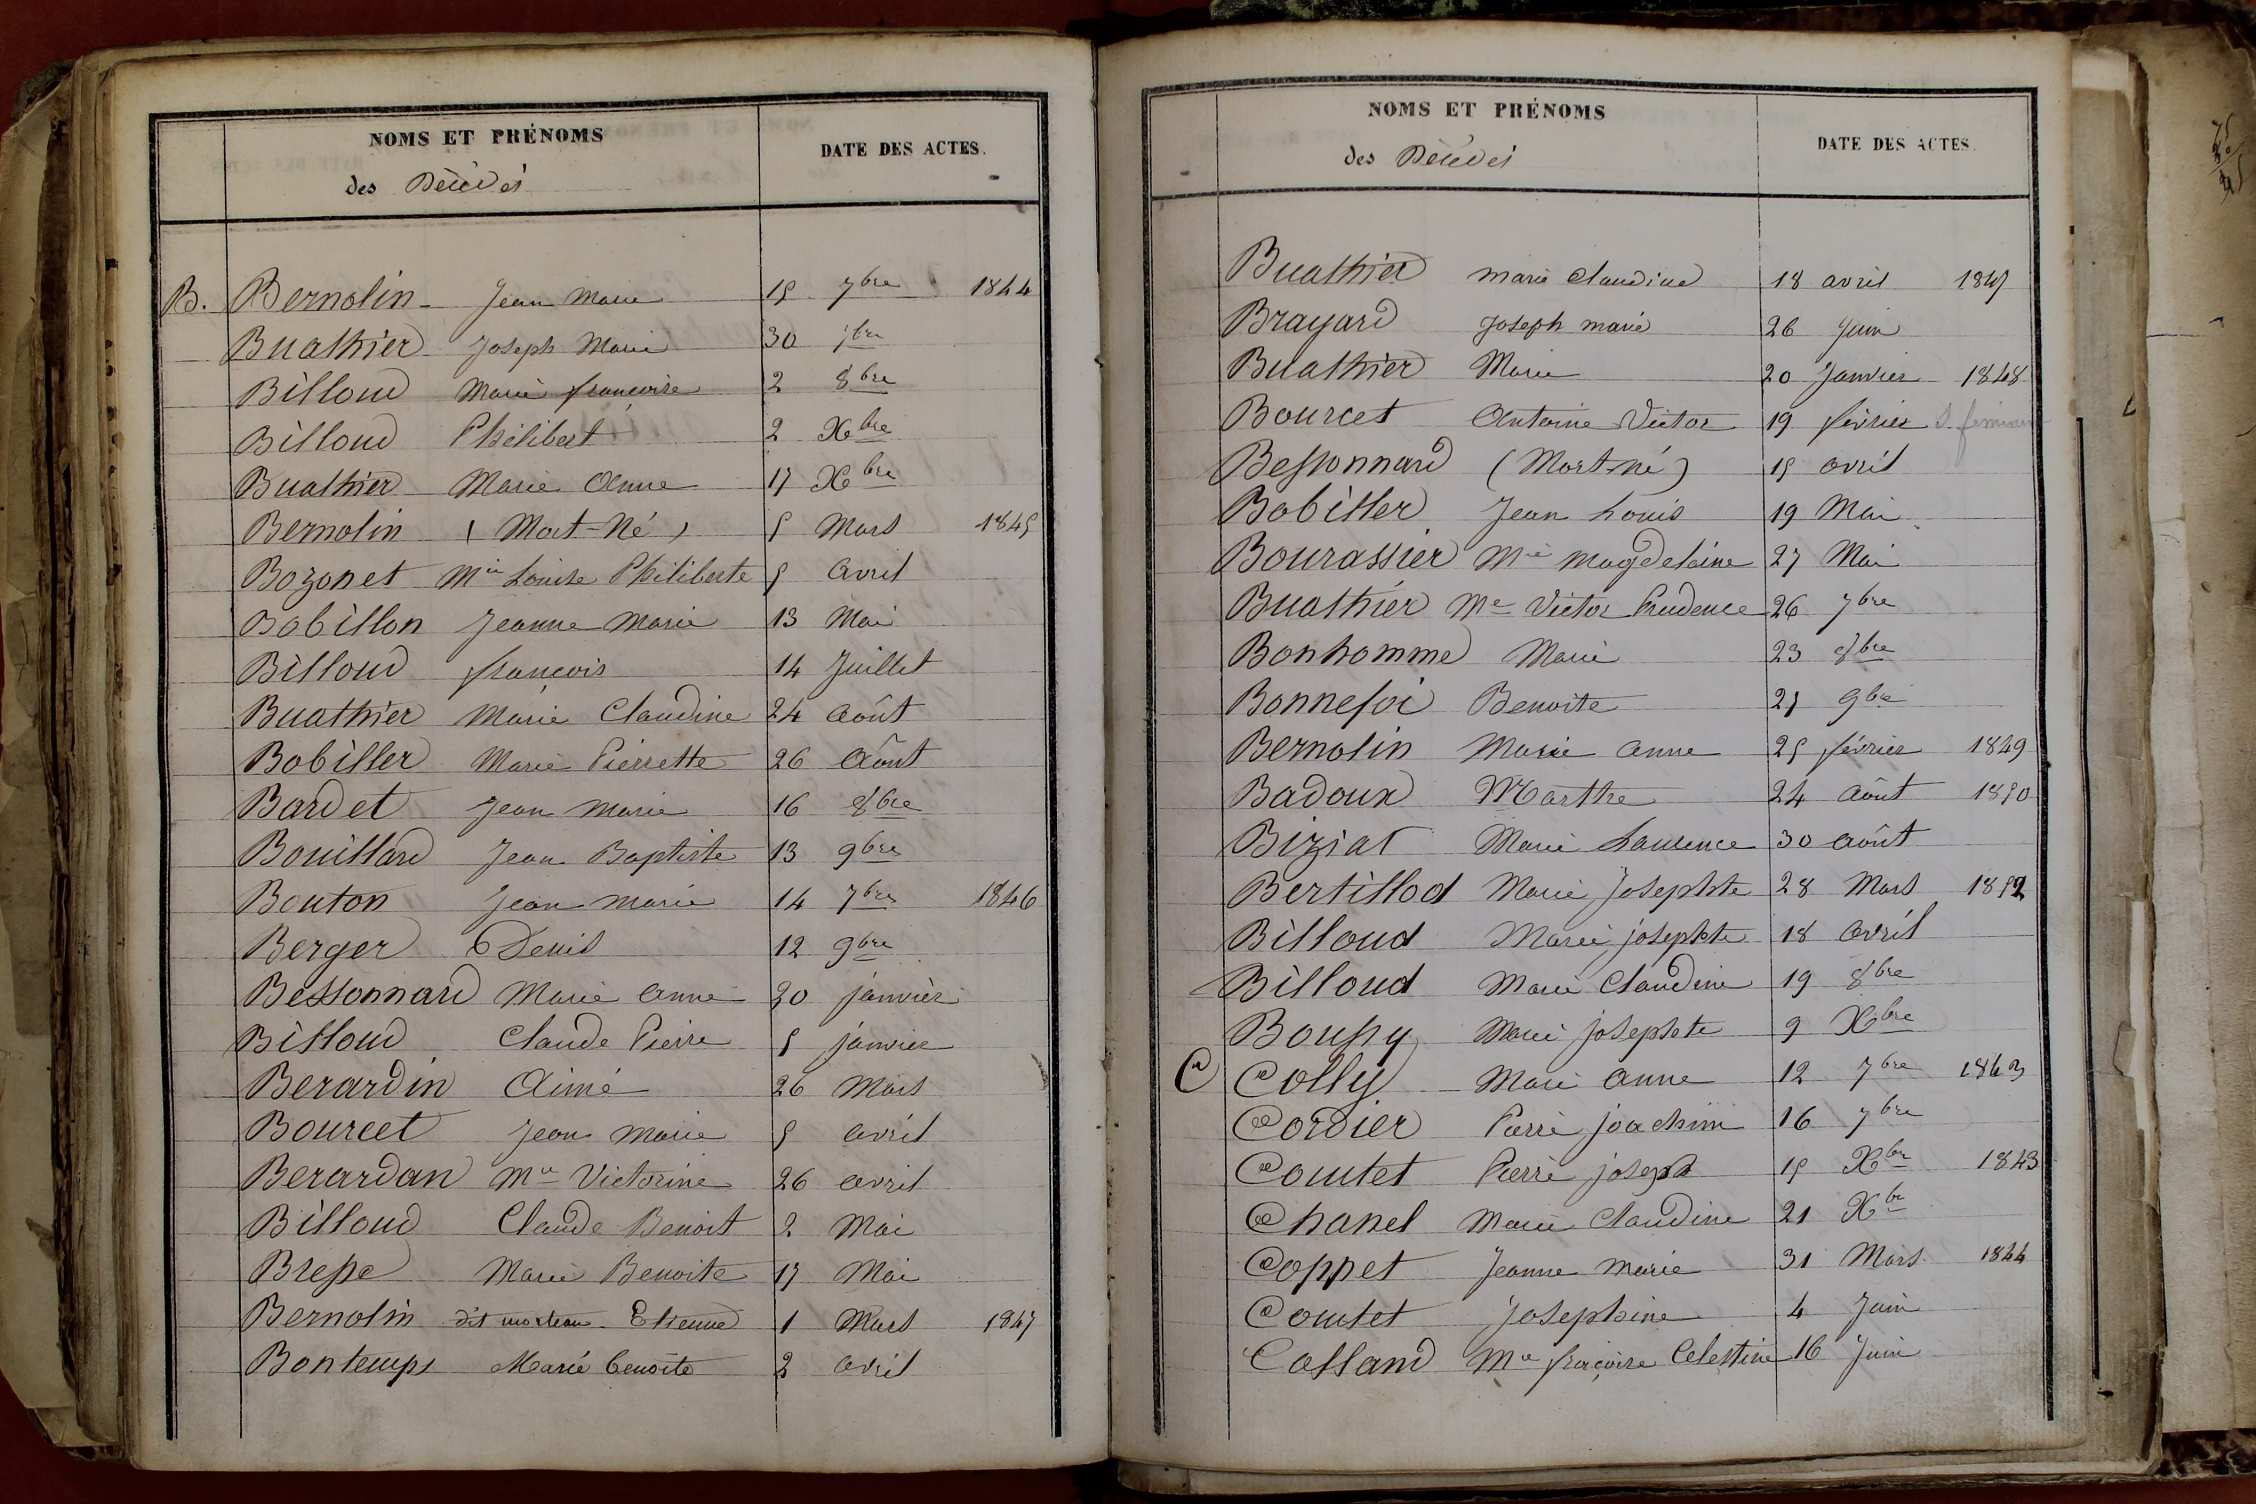 NOMS ET PRÉNOMS
DATE DES ACTES.
des Décédés
B. Bernolin Jean Marie 15 7bre 1844
Buathier Joseph Marie 30 7bre
Billoud Marie françoise 2 8bre
Billoud Philibert 2 Xbre
Buathier Marie Anne 17 Xbre
Bernolin (Mort-Né) 5 Mars 1845
Bozonet Mie Louise Philiberte 5 Avril
Bobillon Jeanne Marie 13 Mai
Billoud françois 14 Juillet
Buathier Marie Claudine 24 Août
Bobiller Marie Pierrette 26 Août
Bardet Jean Marie 16 8bre
Bouillard Jean Baptiste 13 9bre
Bouton Jean Marie 14 7bre 1846
Berger Denis 12 9bre
Bessonnard Marie Anne 20 janvier
Billoud Claude Pierre 5 janvier
Berardin Aimé 26 Mars
Bourcet Jean Marie 5 avril
Berardan Mie Victorine 26 avril
Billoud Claude Benoit 2 Mai
Brepe Marie Benoite 17 Mai
Bernolin dit morteau Etienne 1 Mars 1847
Bontemps Marie benoite 2 avril
NOMS ET PRÉNOMS
DATE DES ACTES.
des Décédés
Buathier marie Claudine 18 avril 1847
Brayard Joseph marie 26 Juin
Buathier Marie 20 Janvier 1848
Bourcet Antoine Victor 19 février S. feminin
Bessonnard (Mort-né) 15 avril
Bobiller Jean Louis 19 Mai
Bourassier Mie Magdelaine 27 Mai
Buathier Me Victor Prudence 26 7bre
Bonhomme Marie 23 8bre
Bonnefoi Benoite 21 9bre
Bernolin Marie Anne 25 février 1849
Badoux Marthe 24 Août 1850
Biziat Marie Laurence 30 août
Bertillod Marie Josephte 28 Mars 1852
Billoud Marie josephte 18 avril
Billoud Marie Claudine 19 8bre
Boupy Marie josephte 9 Xbre
C Colly Marie Anne 12 7bre 1843
Cordier Pierre joachim 16 7bre
Comtet Pierre joseph 15 Xbre 1843
Chanel Marie Claudine 21 Xbre
Coppet Jeanne Marie 31 Mars 1844
Comtet Josephine 4 Juin
Colland Mie fraçoise Celestine 16 Juin